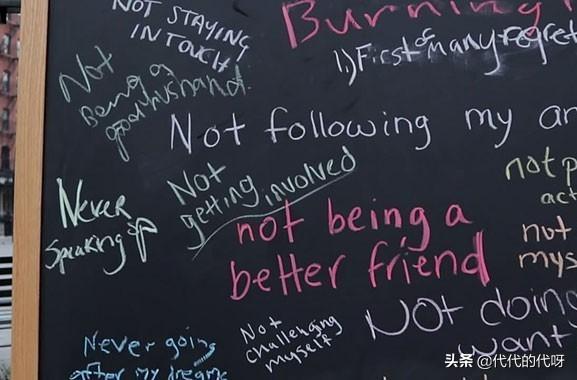 NOT STAYING
IN TOUCH!
Burning
1.) First of many regret
Not
Being a
good husband.
Not following my
Not
getting involved
not
act
Never
Speaking up
not being a
better friend
not
mys
NOT doing
want
Never going
after my dreams
Not
challenging
myself
头条 @代代的代呀